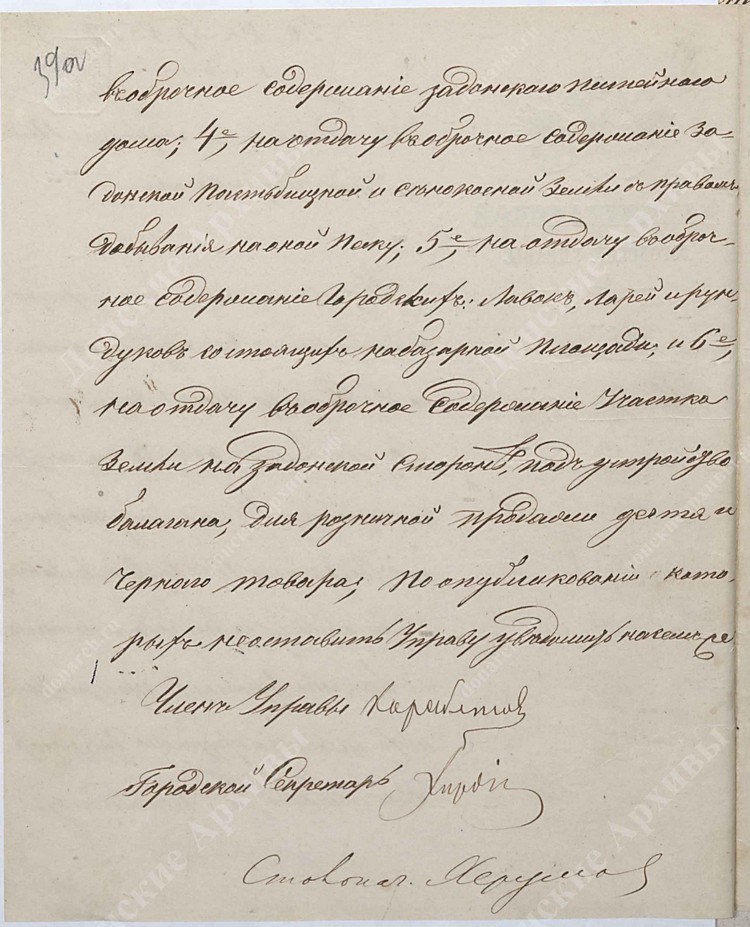 39об
въ оброчное содержаніе задонскаго питейнаго
дома; 4е, на отдачу въ оброчное содержаніе За-
донской Пастьбищной и сѣнокосной Земли съ правомъ
добыванія на оной Песку; 5е, на отдачу въ оброч-
ное содержаніе Городскихъ: Лавокъ, Ларей и рун-
дуковъ состоящихъ на базарной Площади; и 6е,
на отдачу въ оброчное содержаніе Участка
Земли на задонской сторонѣ, подъ устройство
балагана, для розничной продажи дегтя и
Чернаго товара; по опубликованіи кото-
рыхъ неоставить Управу увѣдомить на семъ же
Членъ Управы
Городской Секретарь
Столонач.